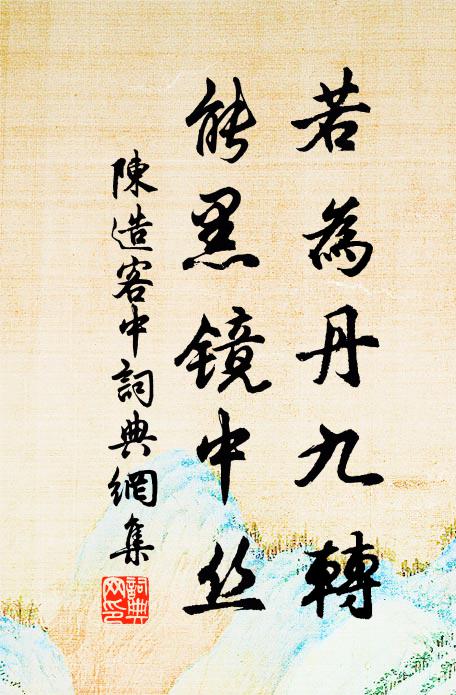 若為丹九轉
能黑镜中丝
陳造客中詞典網集
詞典網印